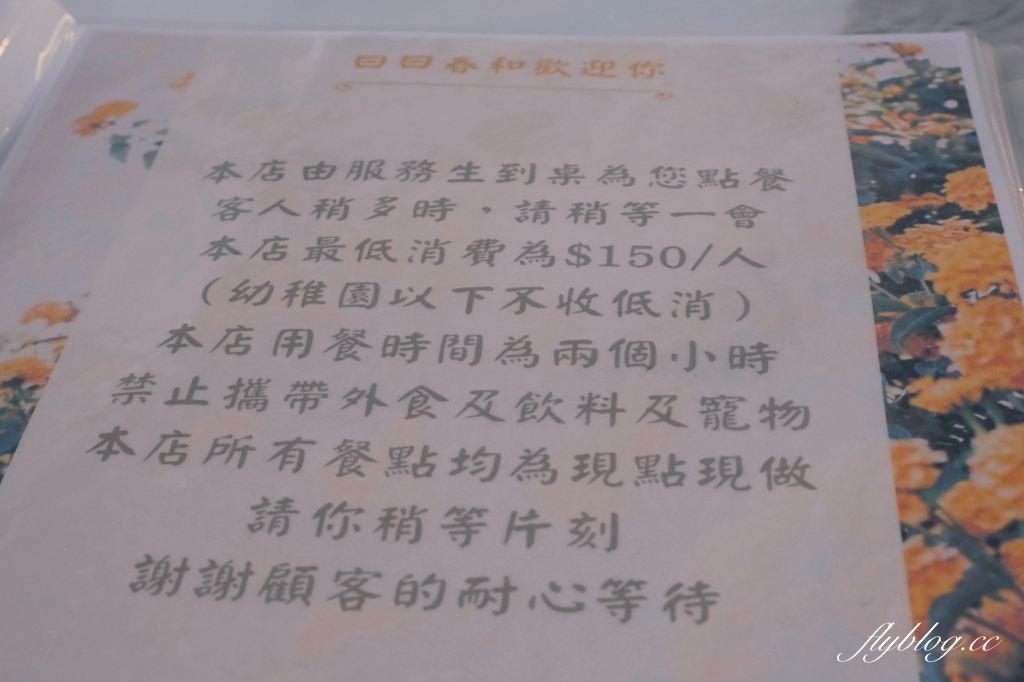 日日春和歡迎你
本店由服務生到桌為您點餐
客人稍多時，請稍等一會
本店最低消費為$150/人
（幼稚園以下不收低消）
本店用餐時間為兩個小時
禁止攜帶外食及飲料及寵物
本店所有餐點均為現點現做
請你稍等片刻
謝謝顧客的耐心等待
flyblog.cc